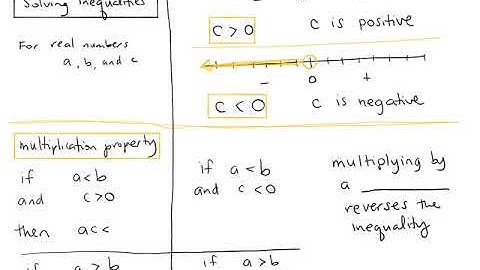 Solving Inequalities
For real numbers
a, b, and c
c > 0
c is positive
−
0
+
c < 0
c is negative
multiplication property
if a < b
and c > 0
then ac <
if a < b
and c < 0
multiplying by
a ________
reverses the
inequality
if a > b
if a > b